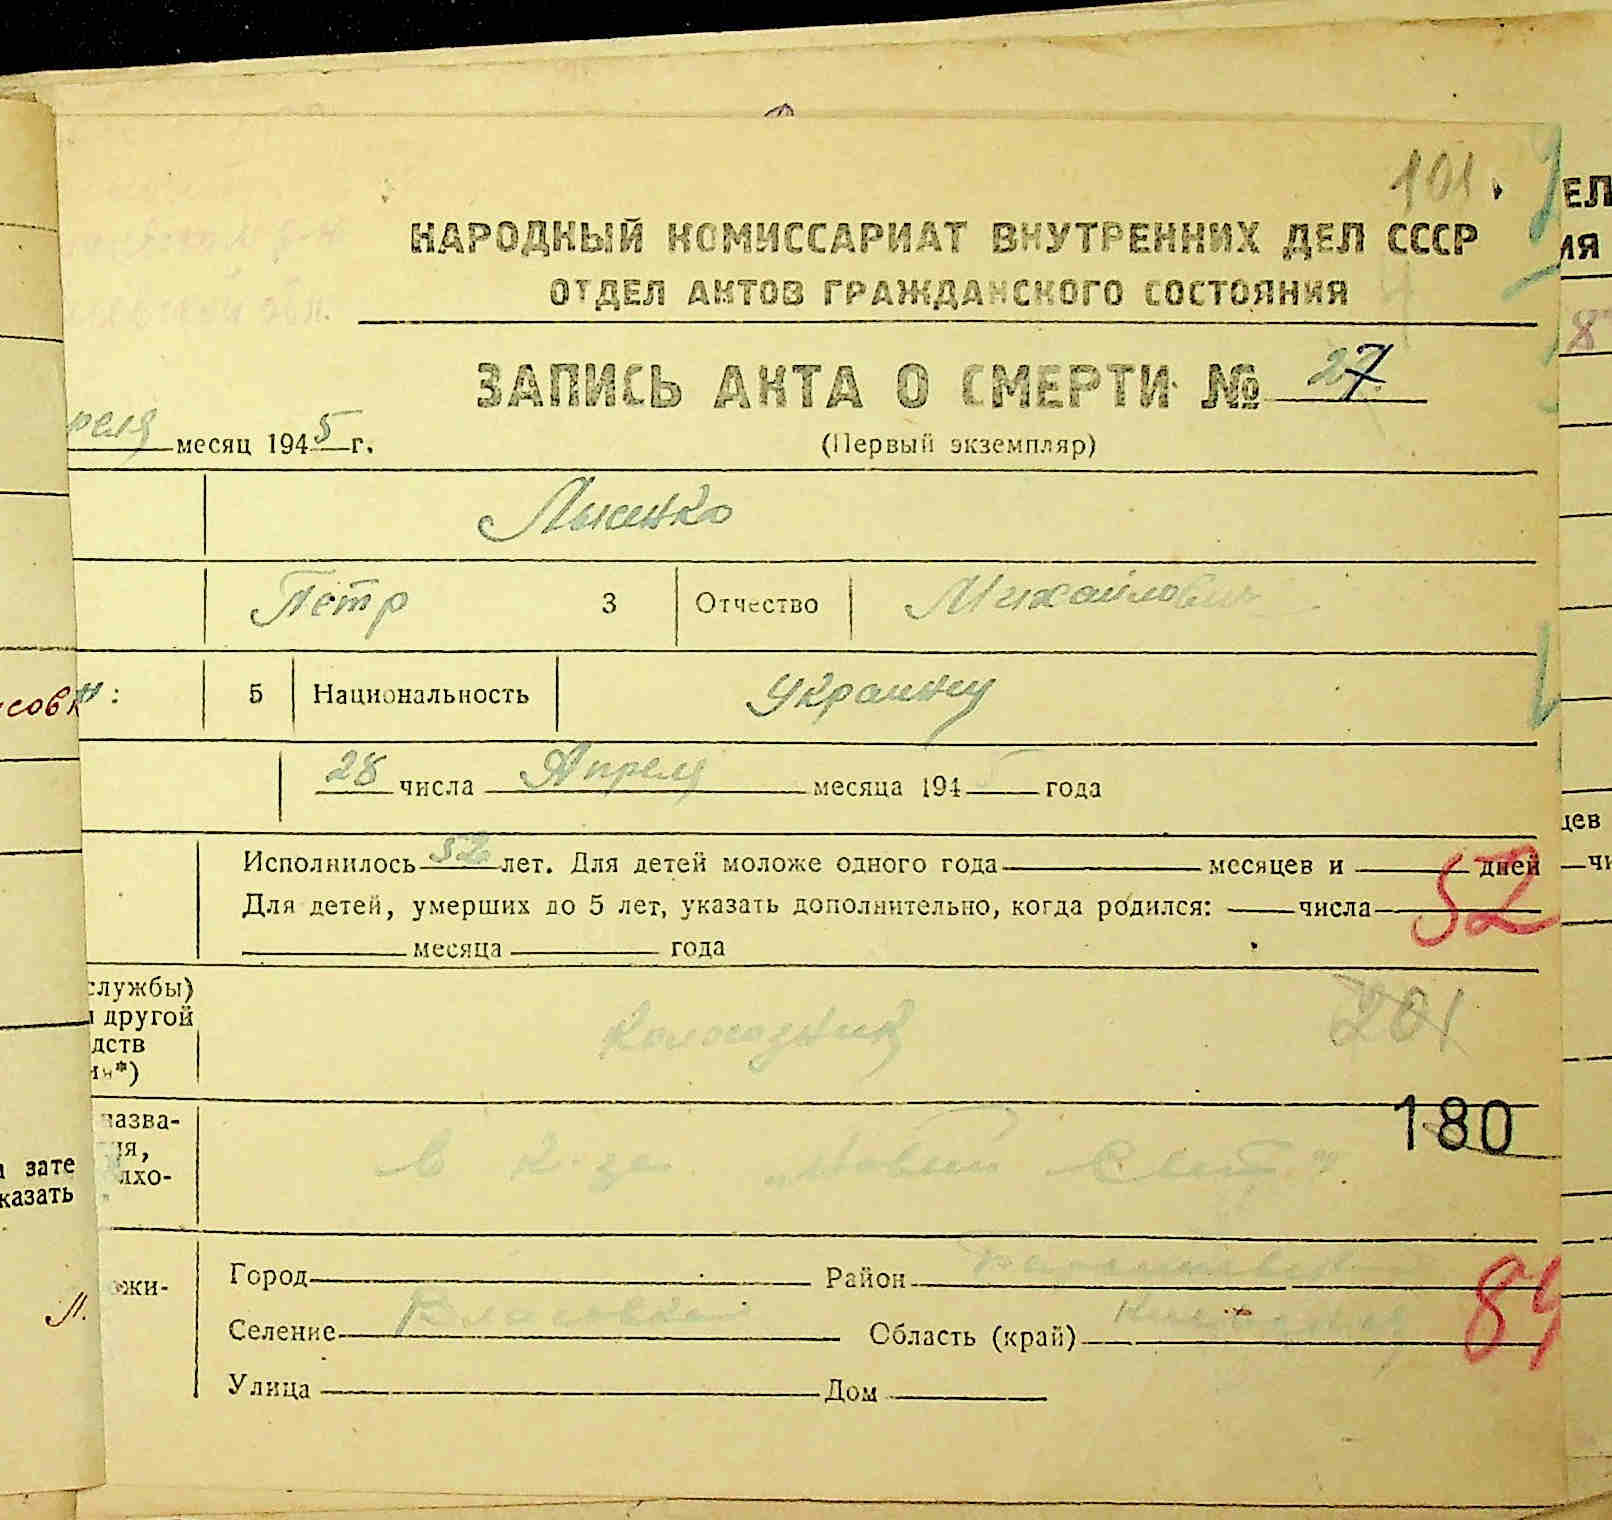 101
НАРОДНЫЙ КОМИССАРИАТ ВНУТРЕННИХ ДЕЛ СССР
ОТДЕЛ АКТОВ ГРАЖДАНСКОГО СОСТОЯНИЯ
ЗАПИСЬ АКТА О СМЕРТИ № 27
реля месяц 1945 г.
(Первый экземпляр)
Лысенко
Петр 3 Отчество Михайлович
5 Национальность Украинец
28 числа Апреля месяца 194 года
Исполнилось 52 лет. Для детей моложе одного года месяцев и дней
52
Для детей, умерших до 5 лет, указать дополнительно, когда родился: числа
месяца года
службы)
другой
дств
201
Колхозник
180
назва-
ия,
лхо-
В к-зе "Новый Свет"
ожи-
Город Район
84
Селение Власовка Область (край) Киевская
Улица Дом
зате
казать
ЕЛ
ИЯ
8
цев